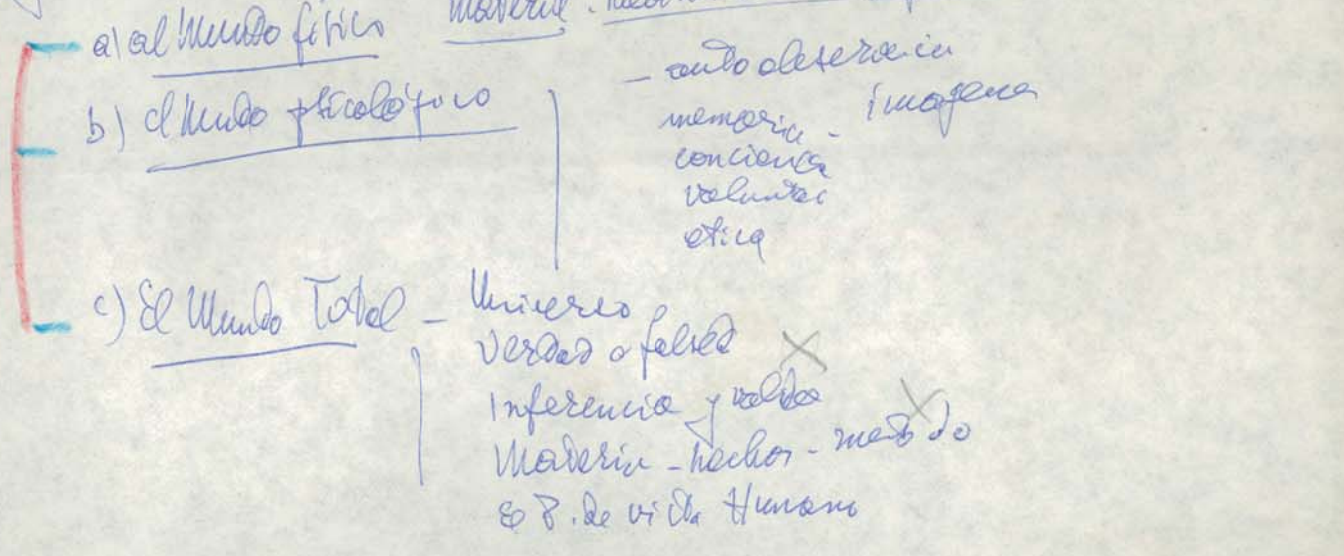 a) al Mundo físico materia
b) el Mundo psicológico
- auto observación
memoria - imagenes
conciencia
voluntad
etica
c) El Mundo Total - Universo
Verdad o falsed
Inferencia y validez
Materia - hechos - metodo
P. de vista Humano